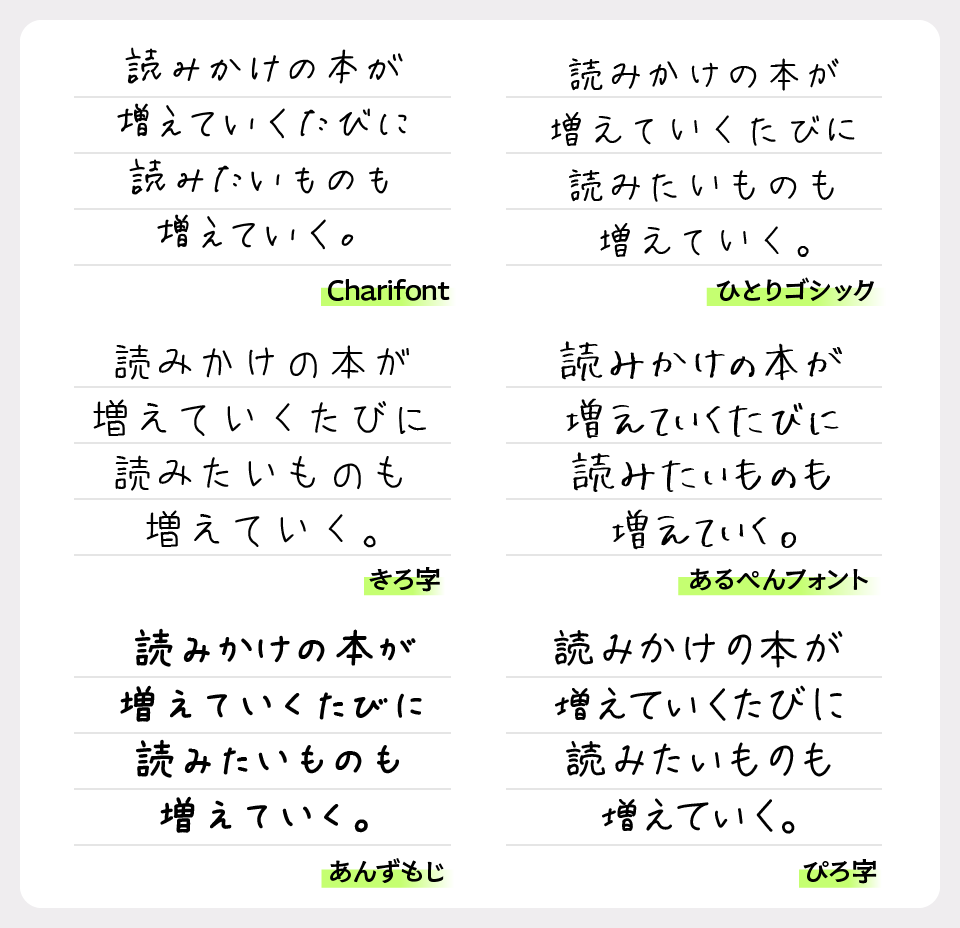 読みかけの本が
増えていくたびに
読みたいものも
増えていく。
Charifont
読みかけの本が
増えていくたびに
読みたいものも
増えていく。
ひとりゴシック
読みかけの本が
増えていくたびに
読みたいものも
増えていく。
きろ字
読みかけの本が
増えていくたびに
読みたいものも
増えていく。
あるぺんフォント
読みかけの本が
増えていくたびに
読みたいものも
増えていく。
あんずもじ
読みかけの本が
増えていくたびに
読みたいものも
増えていく。
ぴろ字